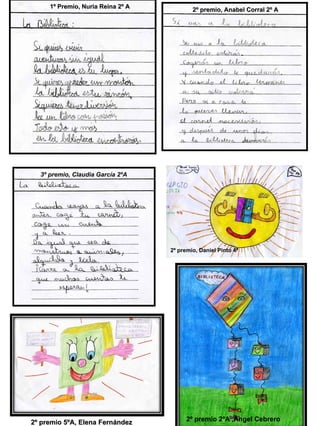 1º Premio, Nuria Reina 2º A
La Biblioteca:
Si quieres vivir
aventuras sin igual
la biblioteca es tu lugar.
Si quieres aprender un montón
la biblioteca es tu rincón.
Si quieres tener diversión
lee un libro con pasión
Todo esto y mas
en la biblioteca encontraras.
2º premio, Anabel Corral 2º A
Si vas a la biblioteca
Si vas a la biblioteca
callado estarás.
Cogerás un libro
y sentadito te quedarás.
Y cuando el libro termines
a su sitio volverá
Pero si a casa te
lo quieres llevar,
el carnet necesitarás
y después de unos días
a la biblioteca devolverás
3º premio, Claudia García 2ºA
La biblioteca
Cuando vayas a la biblioteca
antes coge tu carnet,
coge un cuento
y a leer.
Da igual que sea de
monstruos o animales,
cógelo y
¡Corre a la biblioteca
que muchos cuentos te
esperan!
2º premio, Daniel Pinto 4º
BIBLIOTECA
2º premio 5ºA, Elena Fernández
2º premio 2ºA, Ángel Cebrero